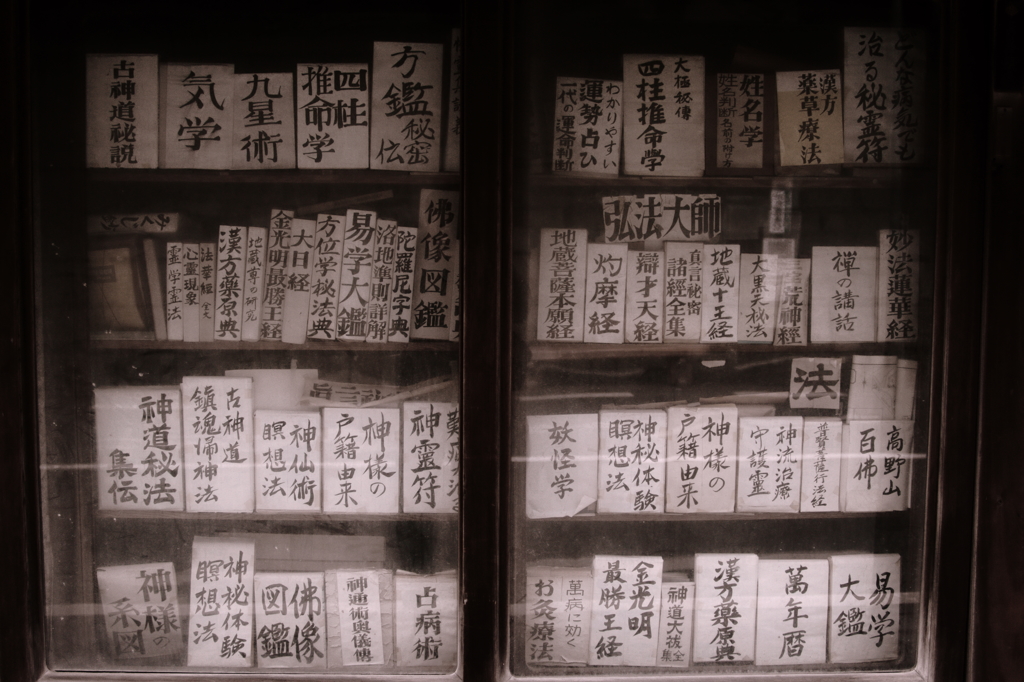 古神道秘説
気学
九星術
四柱
推命学
方鑑秘密伝
わかりやすい
運勢占ひ
一代の運命判断
大極秘傳
四柱推命学
姓名学
漢方
薬草療法
こんな病気でも
治る秘霊符
心霊現象
霊学霊法
法華経
漢方藥原典
地蔵尊の研究
金光明最勝王経
大日経
方位学秘法典
易学大鑑
洛地準則詳解
陀羅尼字典
佛像図鑑
弘法大師
地蔵菩薩本願経
灼摩経
辯才天経
真言秘密
諸經全集
地蔵十王経
大黒天秘法
荒神經
禅の講話
妙法蓮華経
神道秘法
集伝
古神道
鎮魂帰神法
神仙術
瞑想法
神様の
戸籍由来
神霊符
法
妖怪学
神秘体験
瞑想法
神様の
戸籍由来
神流治療
守護霊
普賢菩薩行法経
高野山
百佛
神様の
系図
神秘体験
瞑想法
佛像
図鑑
神通術奥儀傳
占病術
萬病に効く
お灸療法
金光明
最勝王経
神道大祓全集
漢方藥原典
萬年暦
易学
大鑑